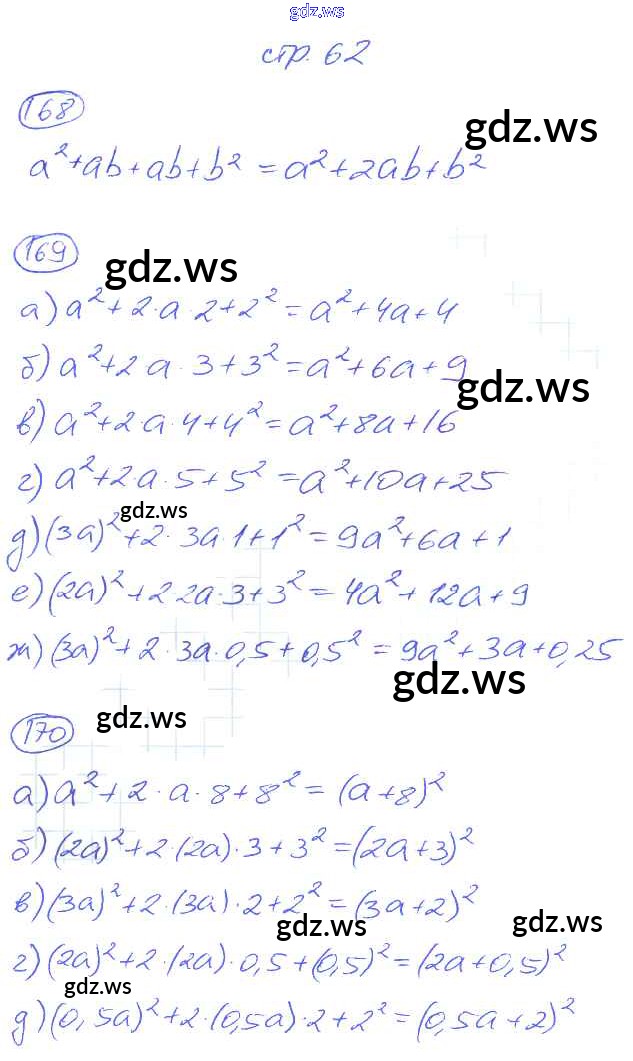 gdz.ws
стр. 62
168
gdz.ws
a²+ab+ab+b² = a²+2ab+b²
169
gdz.ws
а) a²+2·a·2+2² = a²+4a+4
б) a²+2·a·3+3² = a²+6a+9
gdz.ws
в) a²+2·a·4+4² = a²+8a+16
г) a²+2·a·5+5² = a²+10a+25
gdz.ws
д) (3a)²+2·3a·1+1² = 9a²+6a+1
е) (2a)²+2 2a·3+3² = 4a²+12a+9
ж) (3a)²+2·3a·0,5+0,5² = 9a²+3a+0,25
gdz.ws
170
gdz.ws
а) a²+2·a·8+8² = (a+8)²
б) (2a)²+2·(2a)·3+3² = (2a+3)²
в) (3a)²+2·(3a)·2+2² = (3a+2)²
gdz.ws
gdz.ws
г) (2a)²+2·(2a)·0,5+(0,5)² = (2a+0,5)²
gdz.ws
д) (0,5a)²+2·(0,5a)·2+2² = (0,5a+2)²